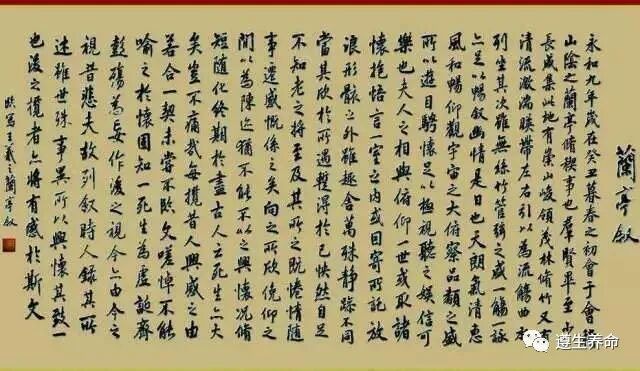 蘭亭叙
永和九年歲在癸丑暮春之初會于會稽
山陰之蘭亭脩稧事也羣賢畢至少
長咸集此地有崇山峻領茂林脩竹又有
清流激湍暎帶左右引以為流觴曲水
列坐其次雖無絲竹管絃之盛一觴一詠
亦足以暢叙幽情是日也天朗氣清惠
風和暢仰觀宇宙之大俯察品類之盛
所以遊目騁懷足以極視聽之娛信可
樂也夫人之相與俯仰一世或取諸
懷抱悟言一室之內或因寄所託放
浪形骸之外雖趣舍萬殊靜躁不同
當其欣於所遇暫得於己怏然自足
不知老之將至及其所之既惓情隨
事遷感慨係之矣向之所欣俛仰之
間以為陳迹猶不能不以之興懷況脩
短隨化終期於盡古人云死生亦大
矣豈不痛哉每攬昔人興感之由
若合一契未嘗不臨文嗟悼不能
喻之於懷固知一死生為虛誕齊
彭殤為妄作後之視今亦由今之
視昔悲夫故列叙時人錄其所
述雖世殊事異所以興懷其致一
也後之攬者亦將有感於斯文
臨寫王羲之蘭亭叙
遵生养命